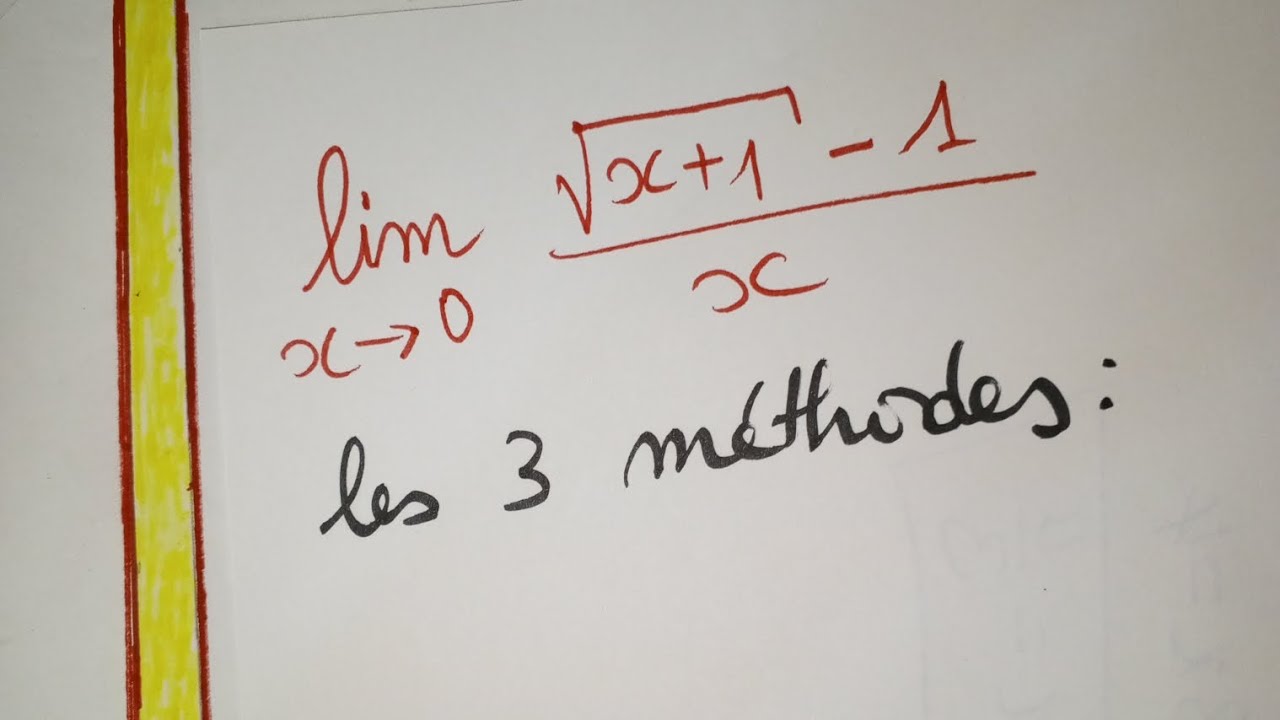 lim x→0 (√(x+1) - 1)/x
les 3 méthodes: